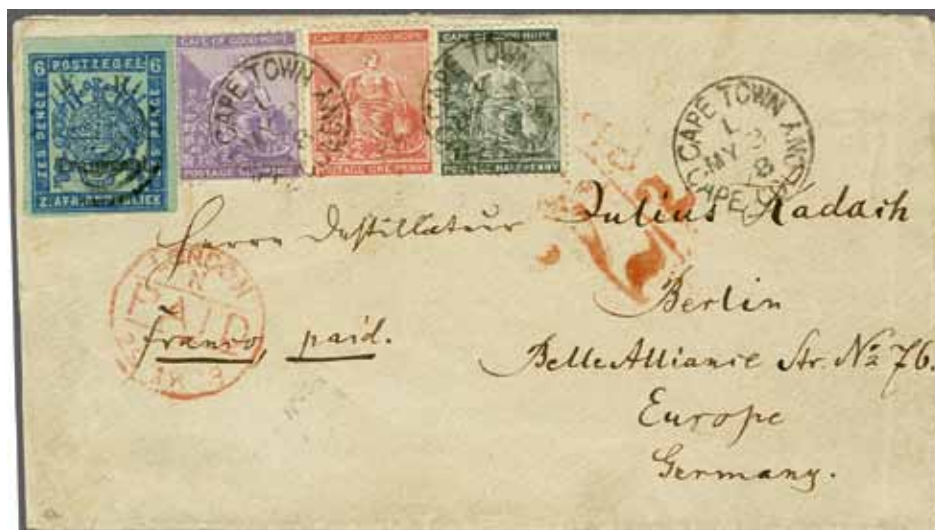 6 POSTZEGEL 6
ZES PENCE
Z. AFR. REPUBLIEK
CAPE OF GOOD HOPE
POSTAGE SIX PENCE
CAPE OF GOOD HOPE
POSTAGE ONE PENNY
CAPE OF GOOD HOPE
POSTAGE HALF PENNY
CAPE TOWN
CAPE TOWN
CAPE TOWN
L
MY 8
Herrn Destillateur Julius Kadach
Berlin
Belle Alliance Str. No 76.
Europe
Germany.
franco, paid.
LONDON
N
PAID